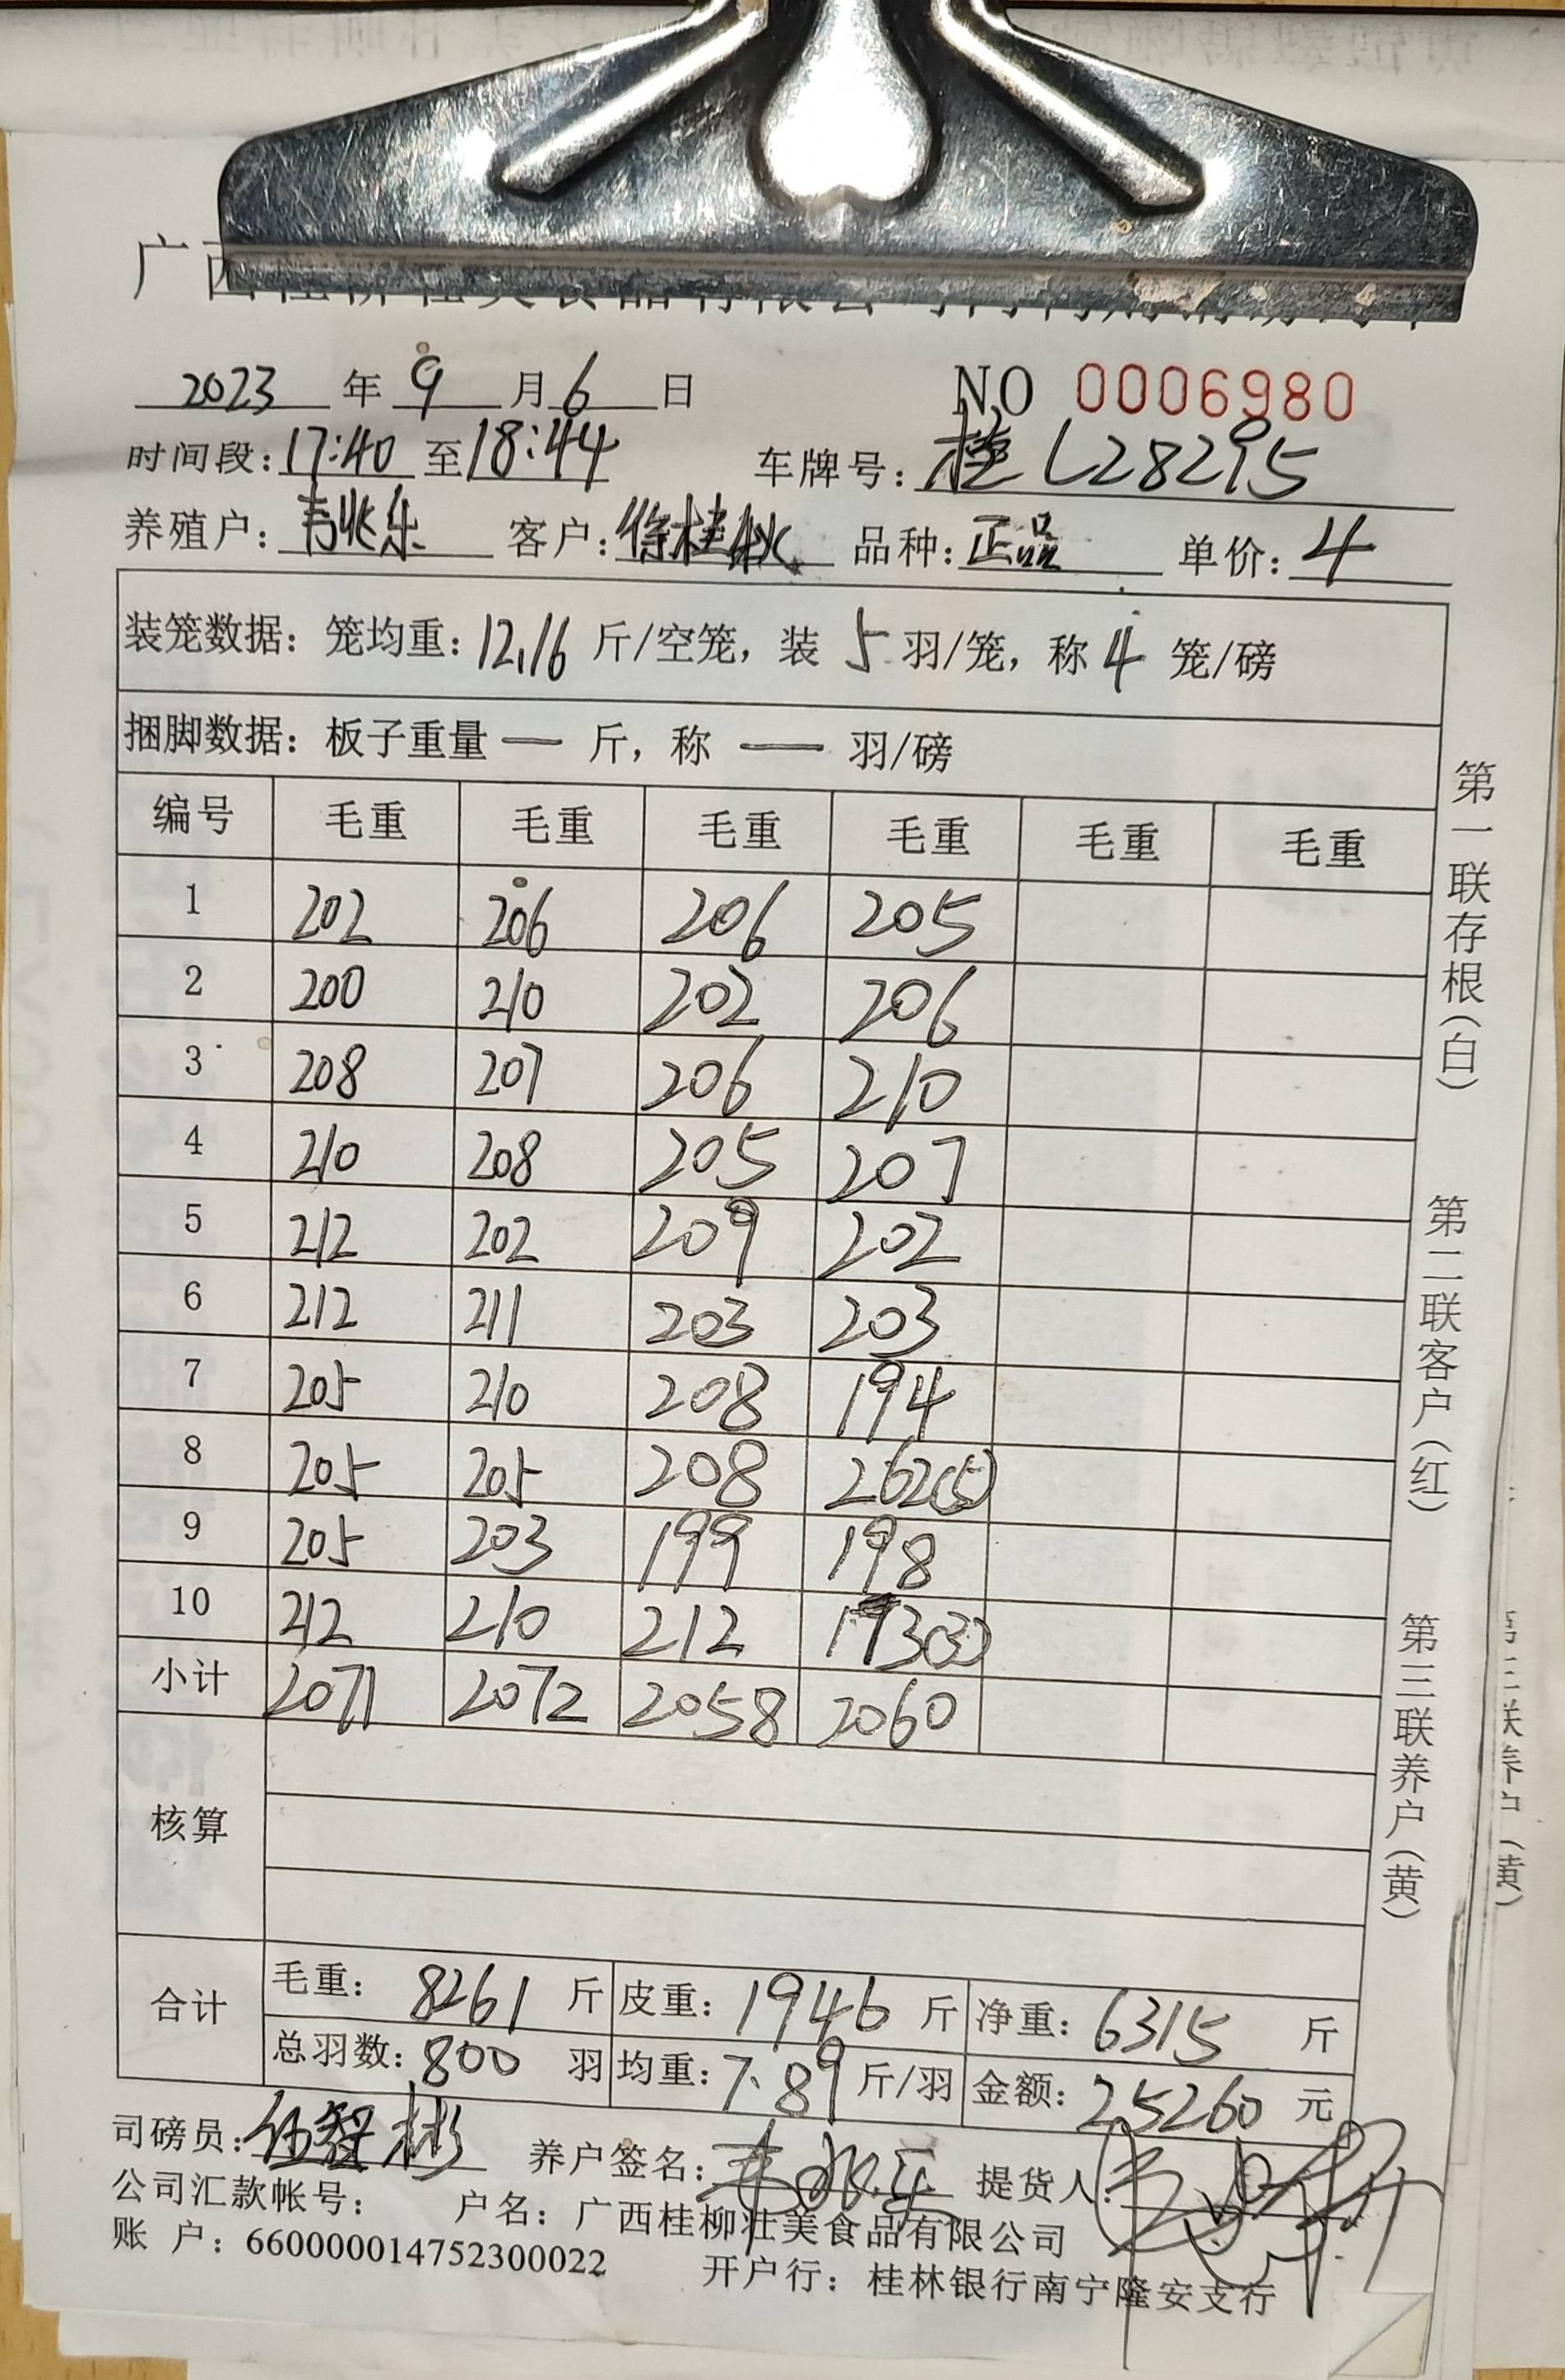 广西
2023 年 9 月 6 日 NO 0006980
时间段：17:40 至 18:44 车牌号：桂L28295
养殖户：韦兆乐 客户：徐桂秋 品种：正品 单价：4
装笼数据：笼均重：12.16 斤/空笼，装 5 羽/笼，称 4 笼/磅
捆脚数据：板子重量 — 斤，称 — 羽/磅
编号 毛重 毛重 毛重 毛重 毛重 毛重
1 202 206 206 205
2 200 210 202 206
3 208 207 206 210
4 210 208 205 207
5 212 202 209 202
6 212 211 203 203
7 205 210 208 194
8 205 205 208 262(5)
9 205 203 199 198
10 212 210 212 193(3)
小计 2071 2072 2058 2060
核算
合计 毛重：8261 斤 皮重：1946 斤 净重：6315 斤
总羽数：800 羽 均重：7.89 斤/羽 金额：25260 元
司磅员：伍智彬 养户签名：韦兆乐 提货人：
公司汇款帐号： 户名：广西桂柳壮美食品有限公司
账 户：660000014752300022 开户行：桂林银行南宁隆安支行
第一联存根（白）
第二联客户（红）
第三联养户（黄）